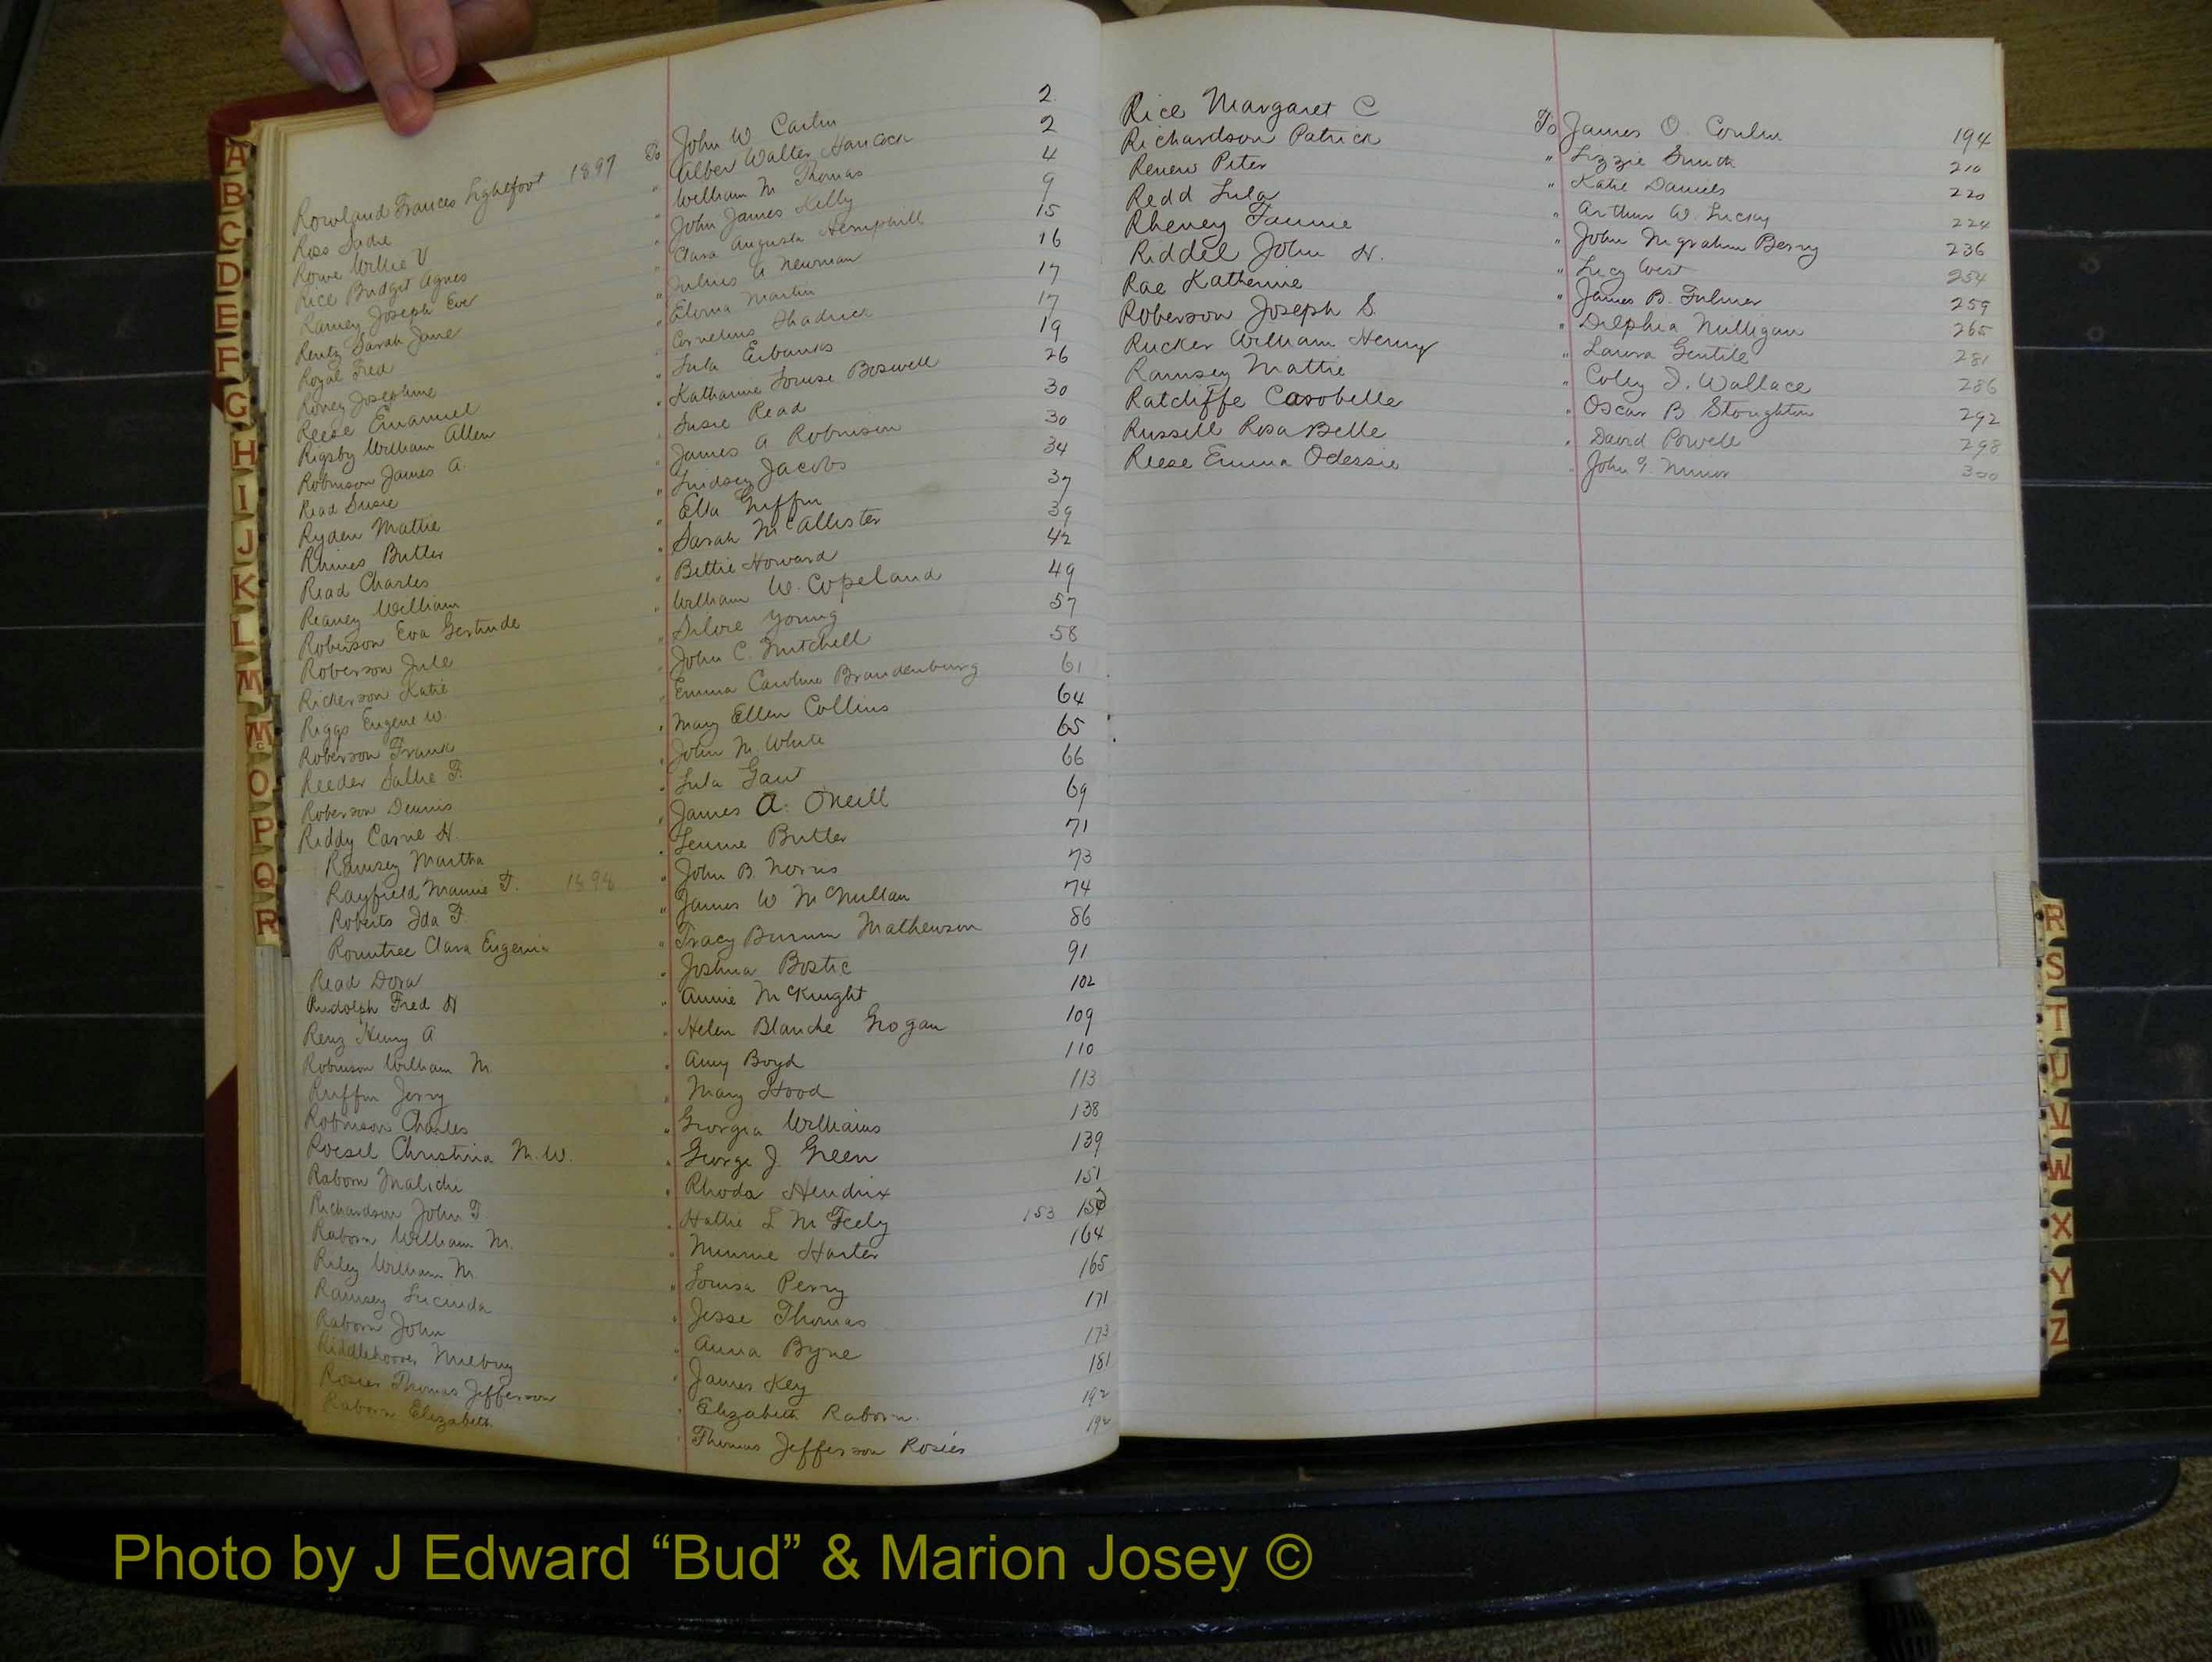 Rowland Frances Lightfoot 1897 To John W Carlin 2
Ross Sadie " Alber Walter Hancock 2
Rowe Willie V " William M Thomas 4
Rice Bridget Agnes " John James Kelly 9
Ramey Joseph Eve " Clara Augusta Hemphill 15
Rentz Sarah Jane " Julius A Newman 16
Royal Fred " Martin 17
Roney Josephine " Cornelius Shadrick 17
Reese Emanuel " Lula Eubanks 19
Rigsby William Allen " Katharine Louise Boswell 26
Robinson James A. " Susie Read 30
Read Susie " James A Robinson 30
Ryden Mattie " Lindsey Jacobs 34
Rhines Butler " Ella Griffin 37
Read Charles " Sarah McAllister 39
Reaney William " Bettie Howard 42
Roberson Eva Gertrude " William W. Copeland 49
Roberson Jule " Silvie Young 57
Rickerson Katie " John C. Mitchell 58
Riggs Eugene W. " Emma Caroline Brandenburg 61
Roberson Frank " Mary Ellen Collins 64
Reeder Sallie F. " John M. White 65
Roberson Dennis " Lula Gant 66
Riddy Carrie H. " James A. ONeill 69
Ramsey Martha " Butler 71
Rayfield Mamie T. 1898 " John B. Norris 73
Roberts Ida F. " James W McMullan 74
Rountree Clara Eugenia " Tracy Mathewson 86
Read Dora " Joshua Bostic 91
Rudolph Fred H " Annie McKnight 102
Renz Henry A " Helen Blanche Grogan 109
Robinson William M. " Amy Boyd 110
Ruffin Jerry " Mary Hood 113
Robinson Charles " Georgia Williams 138
Roesel Christina M. W. " George J. Green 139
Raborn Malichi " Rhoda Hendrix 151
Richardson John T " Hattie L McFeely 153
Raborn William M. " Minnie Harter 164
Riley William M. " Louisa Perry 165
Ramsey Lucinda " Jesse Thomas 171
Raborn John " Anna Byne 173
Riddlehoover " James Key 181
Rosier Thomas Jefferson " Elizabeth Raborn. 192
Raborn Elizabeth " Thomas Jefferson Rosier 192
Rice Margaret C To James O. Conlin 194
Richardson Patrick " Lizzie Smith 210
Renew Peter " Katie Daniels 220
Redd Lula " Arthur W. Lucky 224
Rheney Fannie " John Ingraham Berry 236
Riddel John H. " Lucy West 254
Rae Katherine " James B. Fulmer 259
Roberson Joseph S. " Delphia Milligan 265
Rucker William Henry " Laura Gentile 281
Ramsey Mattie " Coley J. Wallace 286
Ratcliffe Carobelle " Oscar B Stoughton 292
Russell Rosa Belle " David Powell 298
Reese Emma Odessie " John Minor 300
A
B
C
D
E
F
G
H
I
J
K
L
M
Mc
O
P
Q
R
R
S
T
U
V
W
X
Y
Z
Photo by J Edward “Bud” & Marion Josey ©